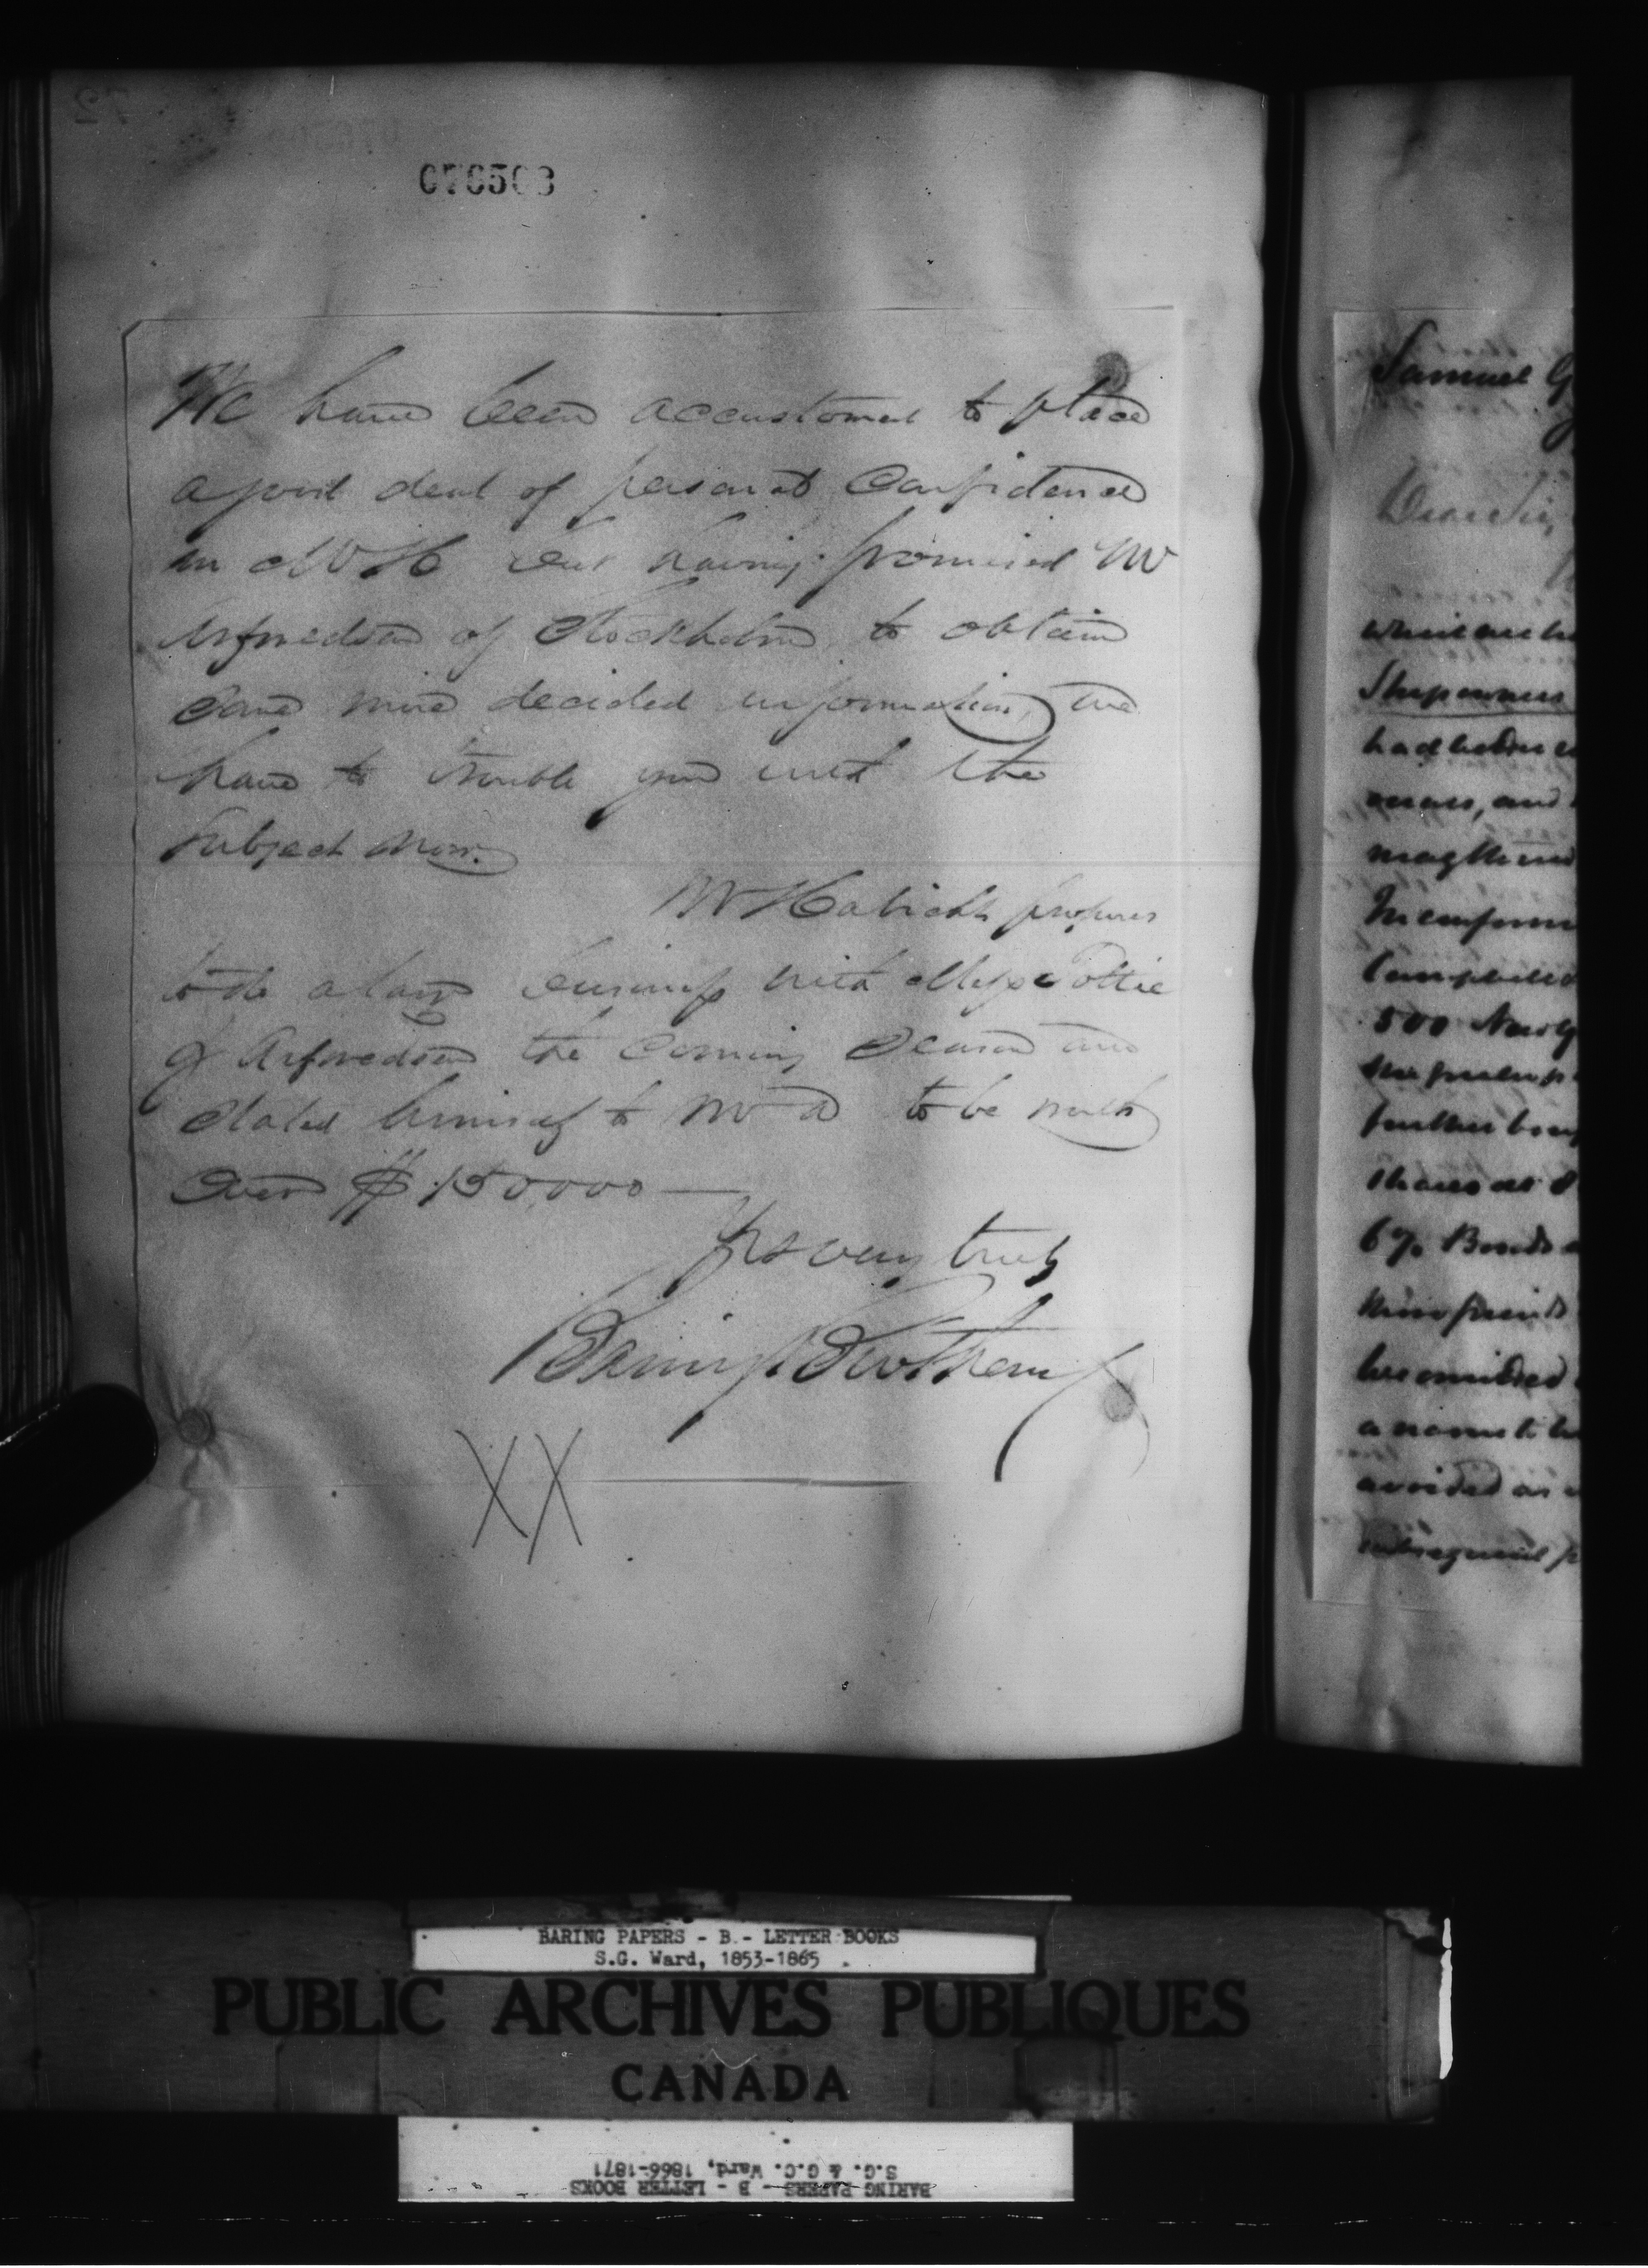 076503
We have been accustomed to place
a good deal of personal confidence
in Mr H but having promised Mr
Arfwedson of Stockholm to obtain
some more decided information, we
have to trouble you with the
subject now.
Mr Habicht proposes
to do a large business with Messrs Tottie
& Arfwedson the coming season and
stated himself to Mr A to be worth
over $150,000 —
Yrs very truly
Baring Brothers
XX
Samuel G
Dear Sir,
Shipowners
had before
means, and
500 New
further
shares at
6% Bonds
a name to
avoided as
subsequent
BARING PAPERS - B - LETTER BOOKS
S.G. Ward, 1853-1865
PUBLIC ARCHIVES PUBLIQUES
CANADA
BARING PAPERS - B - LETTER BOOKS
S.G. & G.C. Ward, 1866-1871